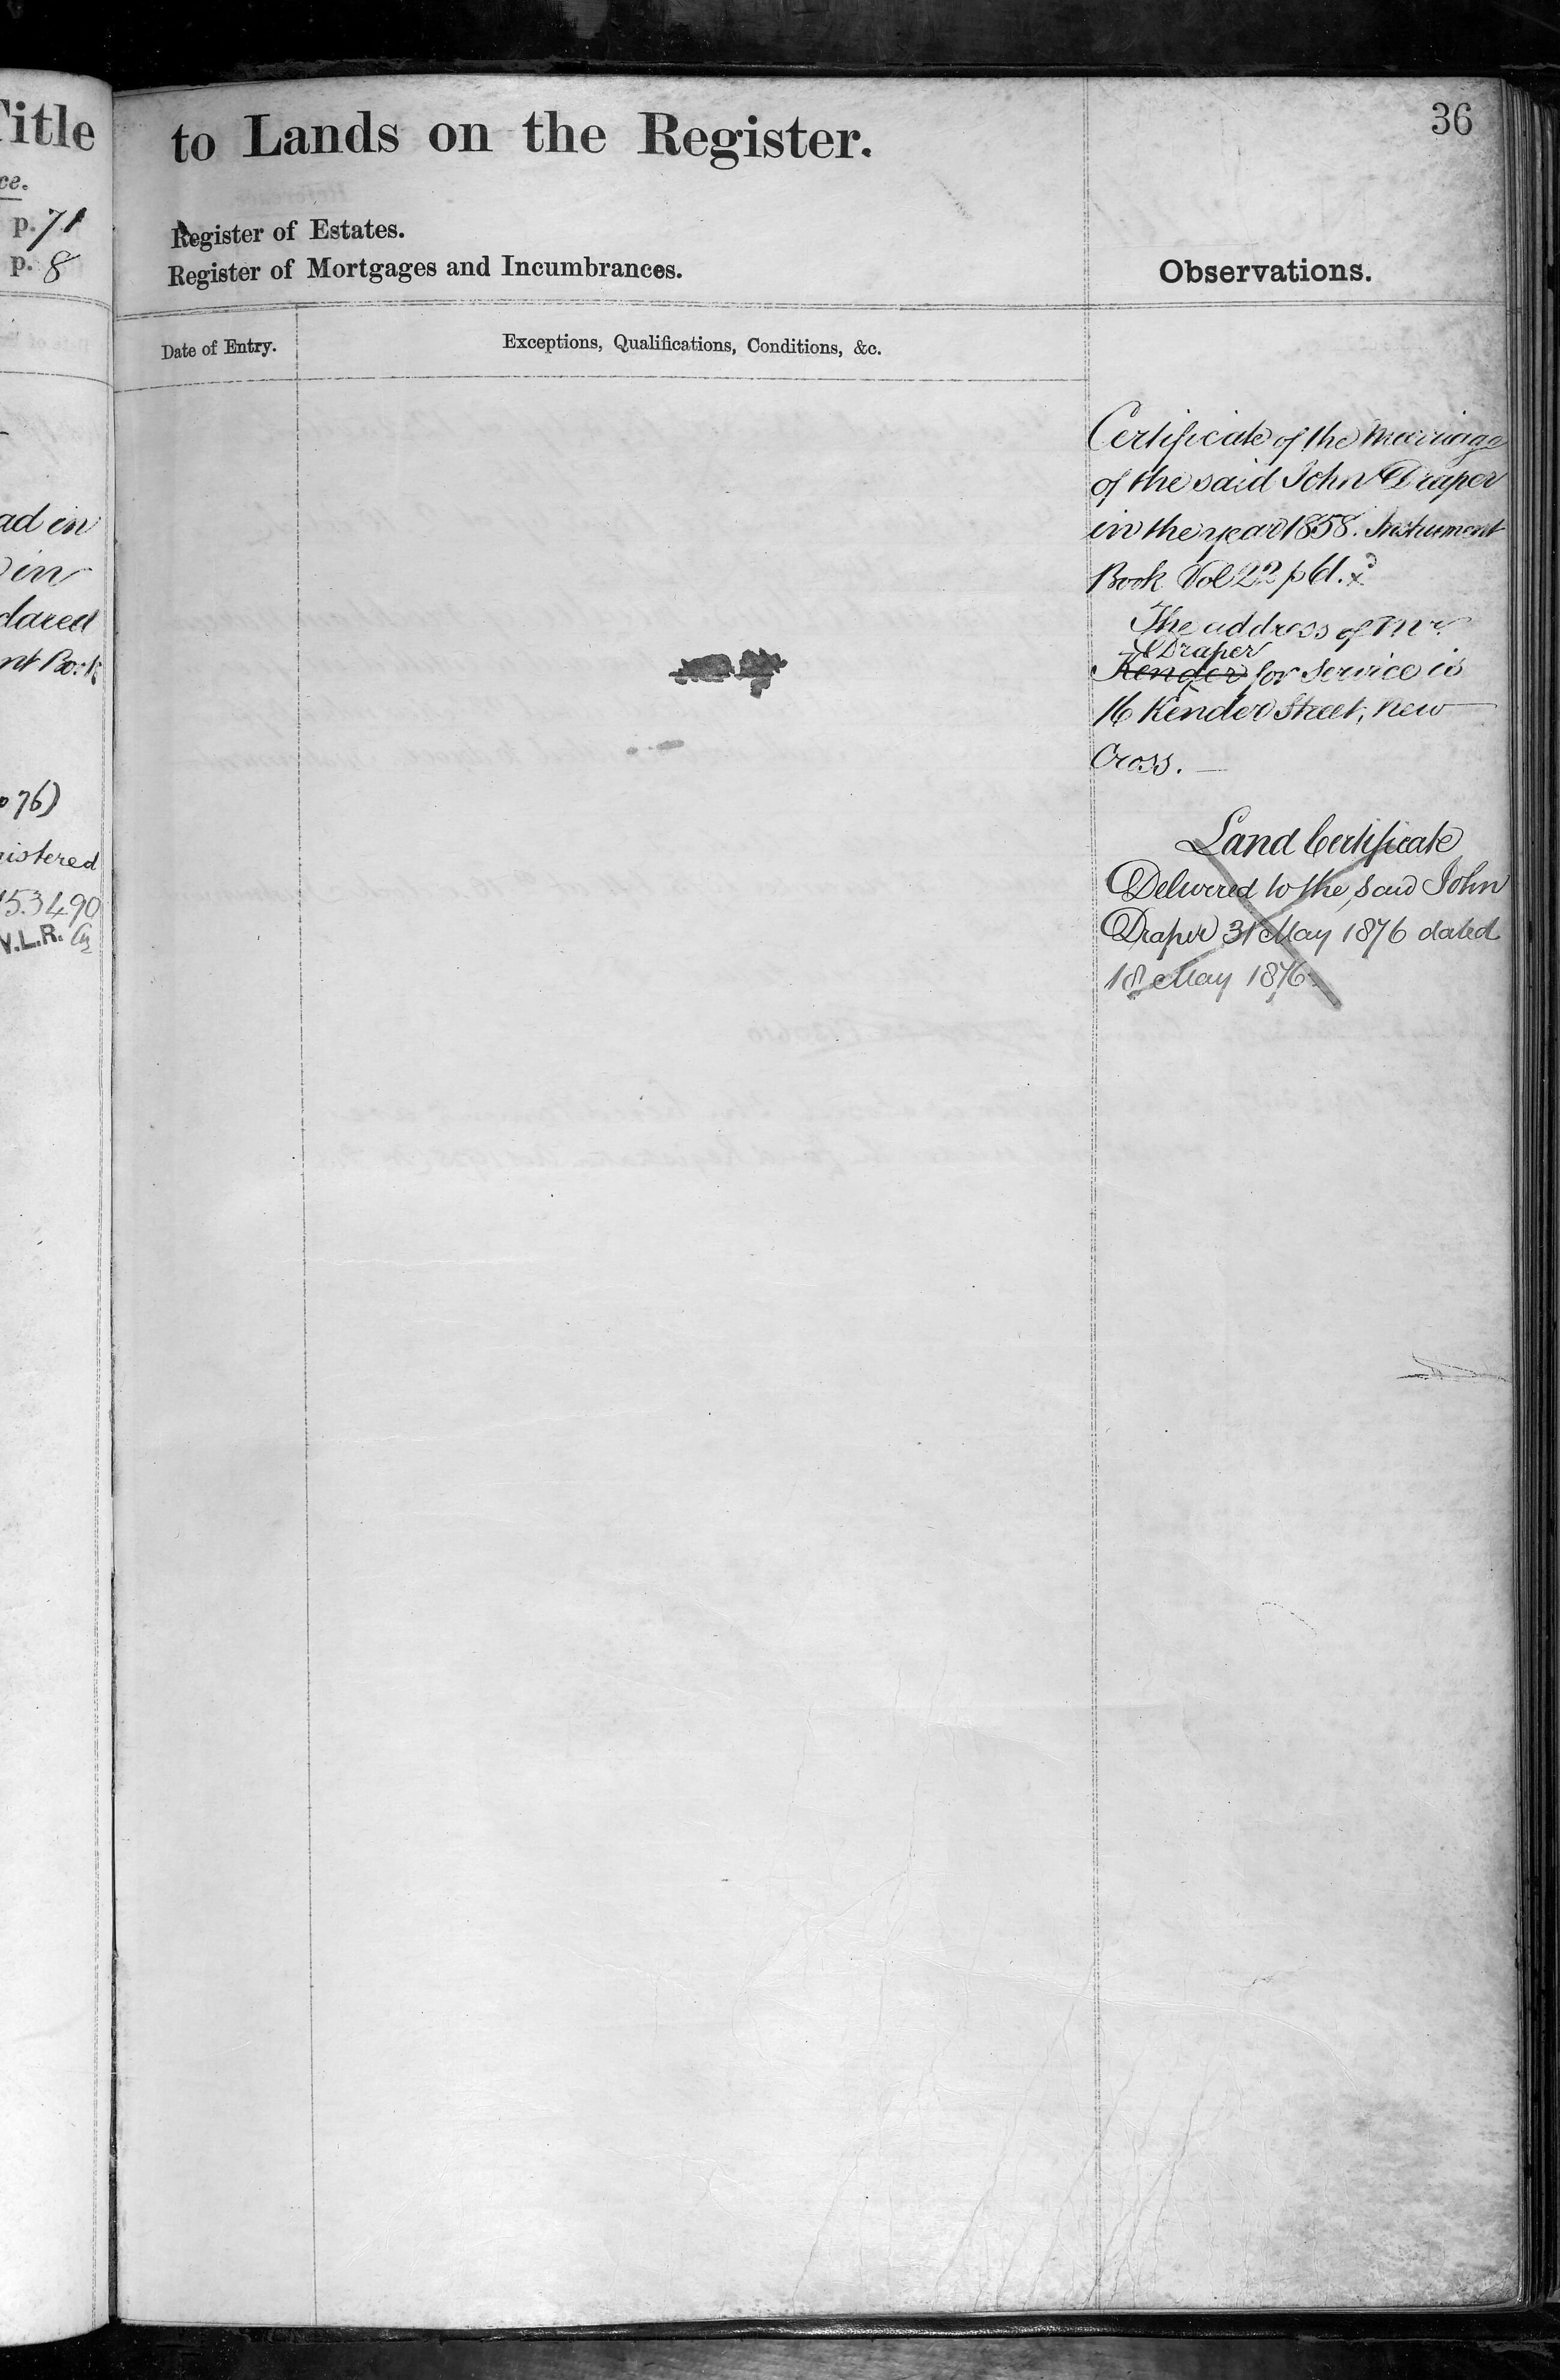 Title
ce.
p. 71
p. 8
ad in
in
clared
nt Book
76)
istered
153490
V.L.R.
to Lands on the Register.
36
Register of Estates.
Register of Mortgages and Incumbrances.
Observations.
Date of Entry.
Exceptions, Qualifications, Conditions, &c.
Certificate of the Marriage
of the said John Draper
in the year 1858. Instrument
Book Vol 22 p 61.
The address of Mr.
Draper
Kender for service is
16 Kender Street, New
Cross.
Land Certificate
Delivered to the said John
Draper 31 May 1876 dated
18 May 1876.